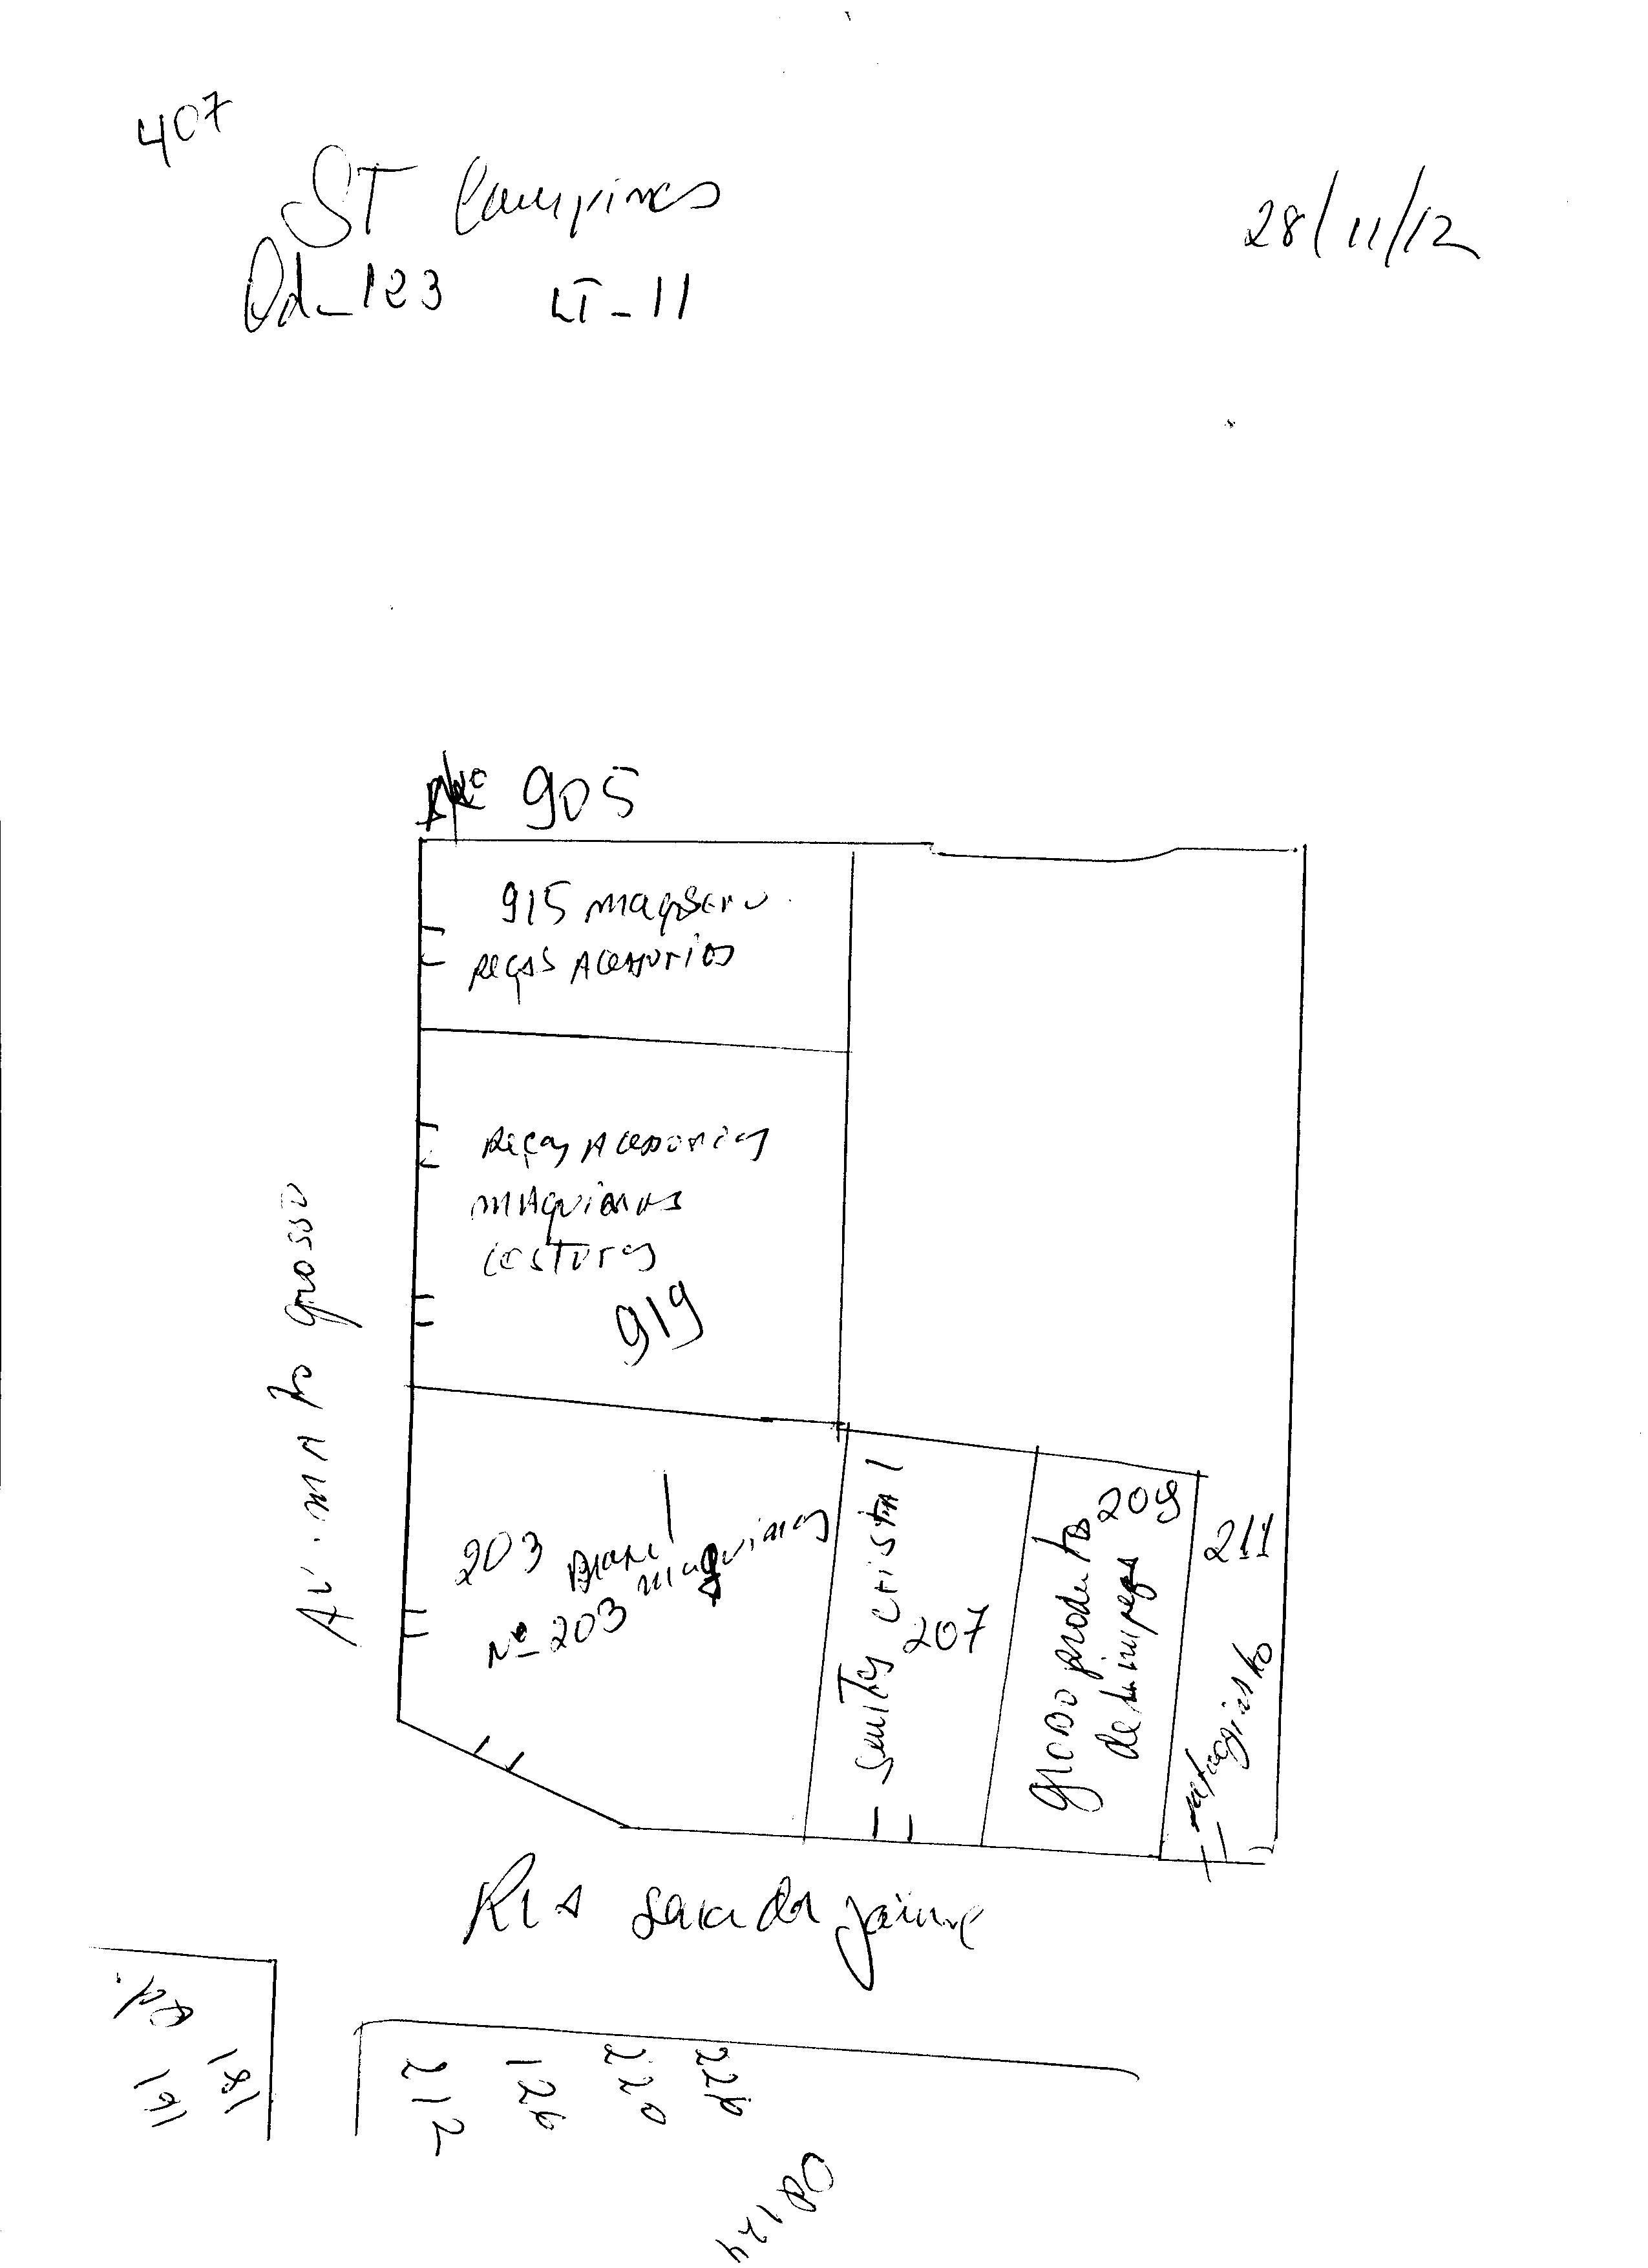 407
ST Campinas
28/11/12
Qd_123 LT_11
Nº 905
915 maqserv.
peças Acessorios
peças Acessorios
mAquinas
costuras
919
Av. mAto grosso
203 Brasil maquinas
Nº 203
cristal
207
produtos 209
de limpeza
211
RUA
Jaime
Qd.
181
191
212
126
220
226
Qd 124